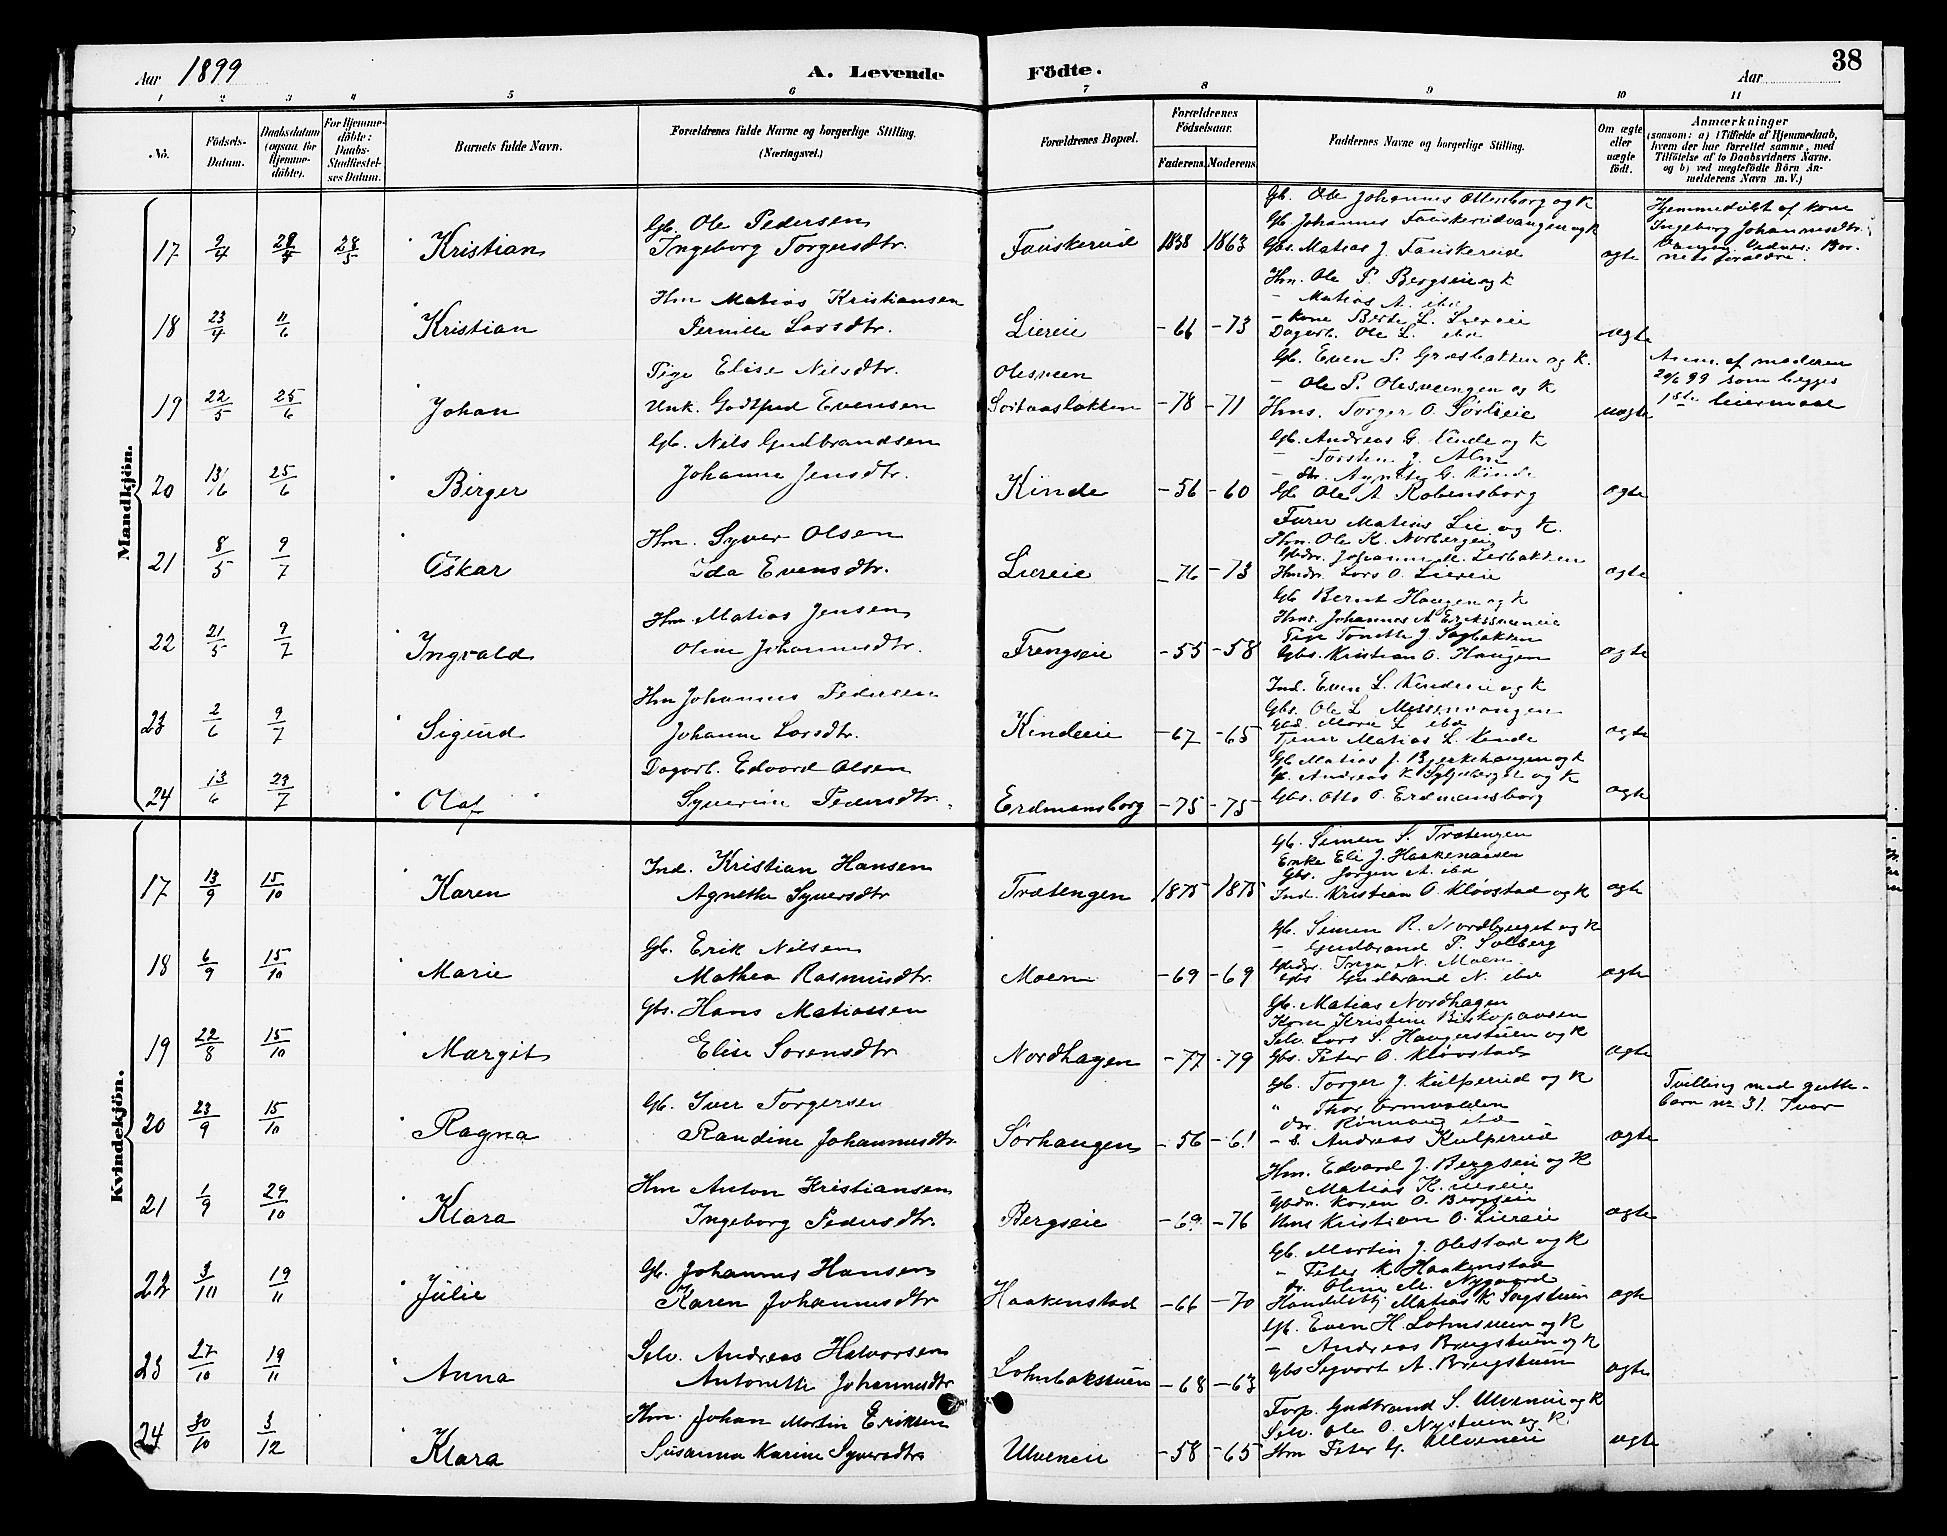 Aar 1899
A. Levende Födte.
Aar
38
1 2 3 4 5 6 7 8 9 10 11
No.
Födsels-Datum.
Daabsdatum (ogsaa for Hjemme-döbte).
For Hjemme-döbte: Daabs-Stadfæstel-ses Datum.
Barnets fulde Navn.
Forældrenes fulde Navne og borgerlige Stilling. (Næringsvei.)
Forældrenes Bopæl.
Forældrenes Födselsaar.
Faderens. Moderens.
Faddernes Navne og borgerlige Stilling.
Om ægte eller uægte födt.
Anmærkninger
(saasom: a) i Tilfælde af Hjemmedaab, hvem der har forrettet samme, med Tilföielse af to Daabsvidners Navne. og b) ved uegtefödte Börn Anmelderens Navn m. V.)
Mandkjön.
17 9/4 28/5 Kristian
Gb. Ole Pedersen
Ingeborg Torgersdtr.
Fauskerud 1838 1863
Gb. Ole Johannes Ottenborg og K
Gb Johannes Fauskerudvangen og K
Gbs. Matias J. Fauskerud
ægte
Hjemmedöbt af kone
Ingeborg Johannesdtr.
18 23/4 11/6 Kristian
Hm Matias Kristiansen
Pernille Larsdtr.
Liereie -66 -73
Hm. Ole P. Bergseie og K
- Matias A. ibd
- Kone Berte L. Liereie
Dagarb. Ole L. ibd
ægte
19 22/5 25/6 Johan
Pige Elise Nilsdtr.
Unk. Godtfred Evensen
Olesveen
-78 -71
Gb. Even P. Græsbakken og K.
- Ole P. Olesveengen og K
Hms. Torger O. Sørlieie
uægte
Anm. af moderen
20/6 99 som begges
1ste leiermaal
20 13/6 25/6 Birger
Gb. Nils Gudbrandsen
Johanne Jensdtr.
Kinde -56 -60
Gb. Andreas G. Kinde og K
- Torsten J. Alm
- dtr. Agnete G. Kinde
Gb Ole A Robensborg
ægte
21 8/5 9/7 Oskar
Hm. Syver Olsen
Ida Evensdtr.
Liereie -76 -73
Furer Matias Lie og K.
Hm. Ole K. Norbergeie
Hmdr. Lars O. Liereie
ægte
22 21/5 9/7 Ingvald
Hm Matias Jensen
Oline Johannesdtr.
Frengseie -55 -58
Gb Bernt Haugen og K
Pige Tonette J. Sagbakken
Gbs. Kristian O. Haugen
ægte
23 2/6 9/7 Sigurd
Hm Johannes Pedersen
Johanne Larsdtr.
Kindeeie -67 -65
Ind. Even L. Kindeeie og K
Gbs. Ole L
Gbd. Marie L ibd
Tjener Matias L. Kinde
ægte
24 13/6 23/7 Olaf
Dagarb. Edvard Olsen
Syverine Pedersdtr.
Erdmansborg -75 -75
Gb Matias J. Bjerkehaugen og K
Gb. Andreas K. og K
Gbs. Otto O. Erdmansborg
ægte
Kvindekjön.
17 13/9 15/10 Karen
Ind. Kristian Hansen
Agnethe Syversdtr
Trætengen 1875 1875
Gb. Simen S. Trætengen
Enke Eli J. Haakenaasen
Gbs. Jørgen A. ibd
Ind. Kristian O. Kløvstad og K
ægte
18 6/9 15/10 Marie
Gb. Erik Nilsen
Mathea Rasmusdtr.
Moen -69 -69
Gb. Simen R. Nordbyeget og K
- Gudbrand P. Solberg
Gbdr. Inga N. Moen
Gbs Gudbrand N. ibd
ægte
19 22/8 15/10 Margit
Gbs. Hans Matiassen
Elise Sørensdtr
Nordhagen -77 -79
Gb. Matias Nordhagen
Kone Kristine Biskopaasen
Selv. Lars S. Haugerstuen og K
Gbs. Peter O. Kløvstad
ægte
20 23/9 15/10 Ragna
Gb. Iver Torgersen
Randine Johannesdtr.
Sørhaugen -56 -61
Gb. Torger J. Kulperud og K
" Thor Ormvolden
dr. Rønnaug ibd
- s. Andreas Kulperud
ægte
Tvilling med gutte-
barn nr 31. Ivar
21 1/9 29/10 Klara
Hm Anton Kristiansen
Ingeborg Pedersdtr.
Bergseie -69 -76
Hm. Edvard J. Bergseie og K
- Matias K. Liereie
Gbdr. Karen O. Bergseie
Hms Kristian O. Liereie
ægte
22 3/10 19/11 Julie
Gb. Johannes Hansen
Karen Johannesdtr
Haakenstad -66 -70
Gb. Martin J. Olestad og K
- Peter K Haakenstad
dr. Oline M. Nygaard
Handelsbtj Matias K Sagstuen
ægte
23 27/10 19/11 Anna
Selv. Andreas Halvorsen
Antonette Johannesdtr
Lohnbakstuen -68 -63
Gb. Even H. Lohnstuen og K
- Andreas Bergstuen og K
Gbs Sigvart A. Bergstuen
ægte
24 30/10 3/12 Klara
Hm. Johan Martin Eriksen
Susanna Karine Syversdtr
Ulveneie -58 -65
Forp. Gudbrand S. Ulveneie og K
Selv. Ole O. Nystuen og K.
Hm Peter G. Ulveneie
ægte